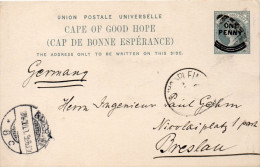 UNION POSTALE UNIVERSELLE
CAPE OF GOOD HOPE
(CAP DE BONNE ESPÉRANCE)
THE ADDRESS ONLY TO BE WRITTEN ON THIS SIDE.
ONE
PENNY
Germany
Herrn Ingenieur Paul
Nicolaiplatz 1 part
Breslau